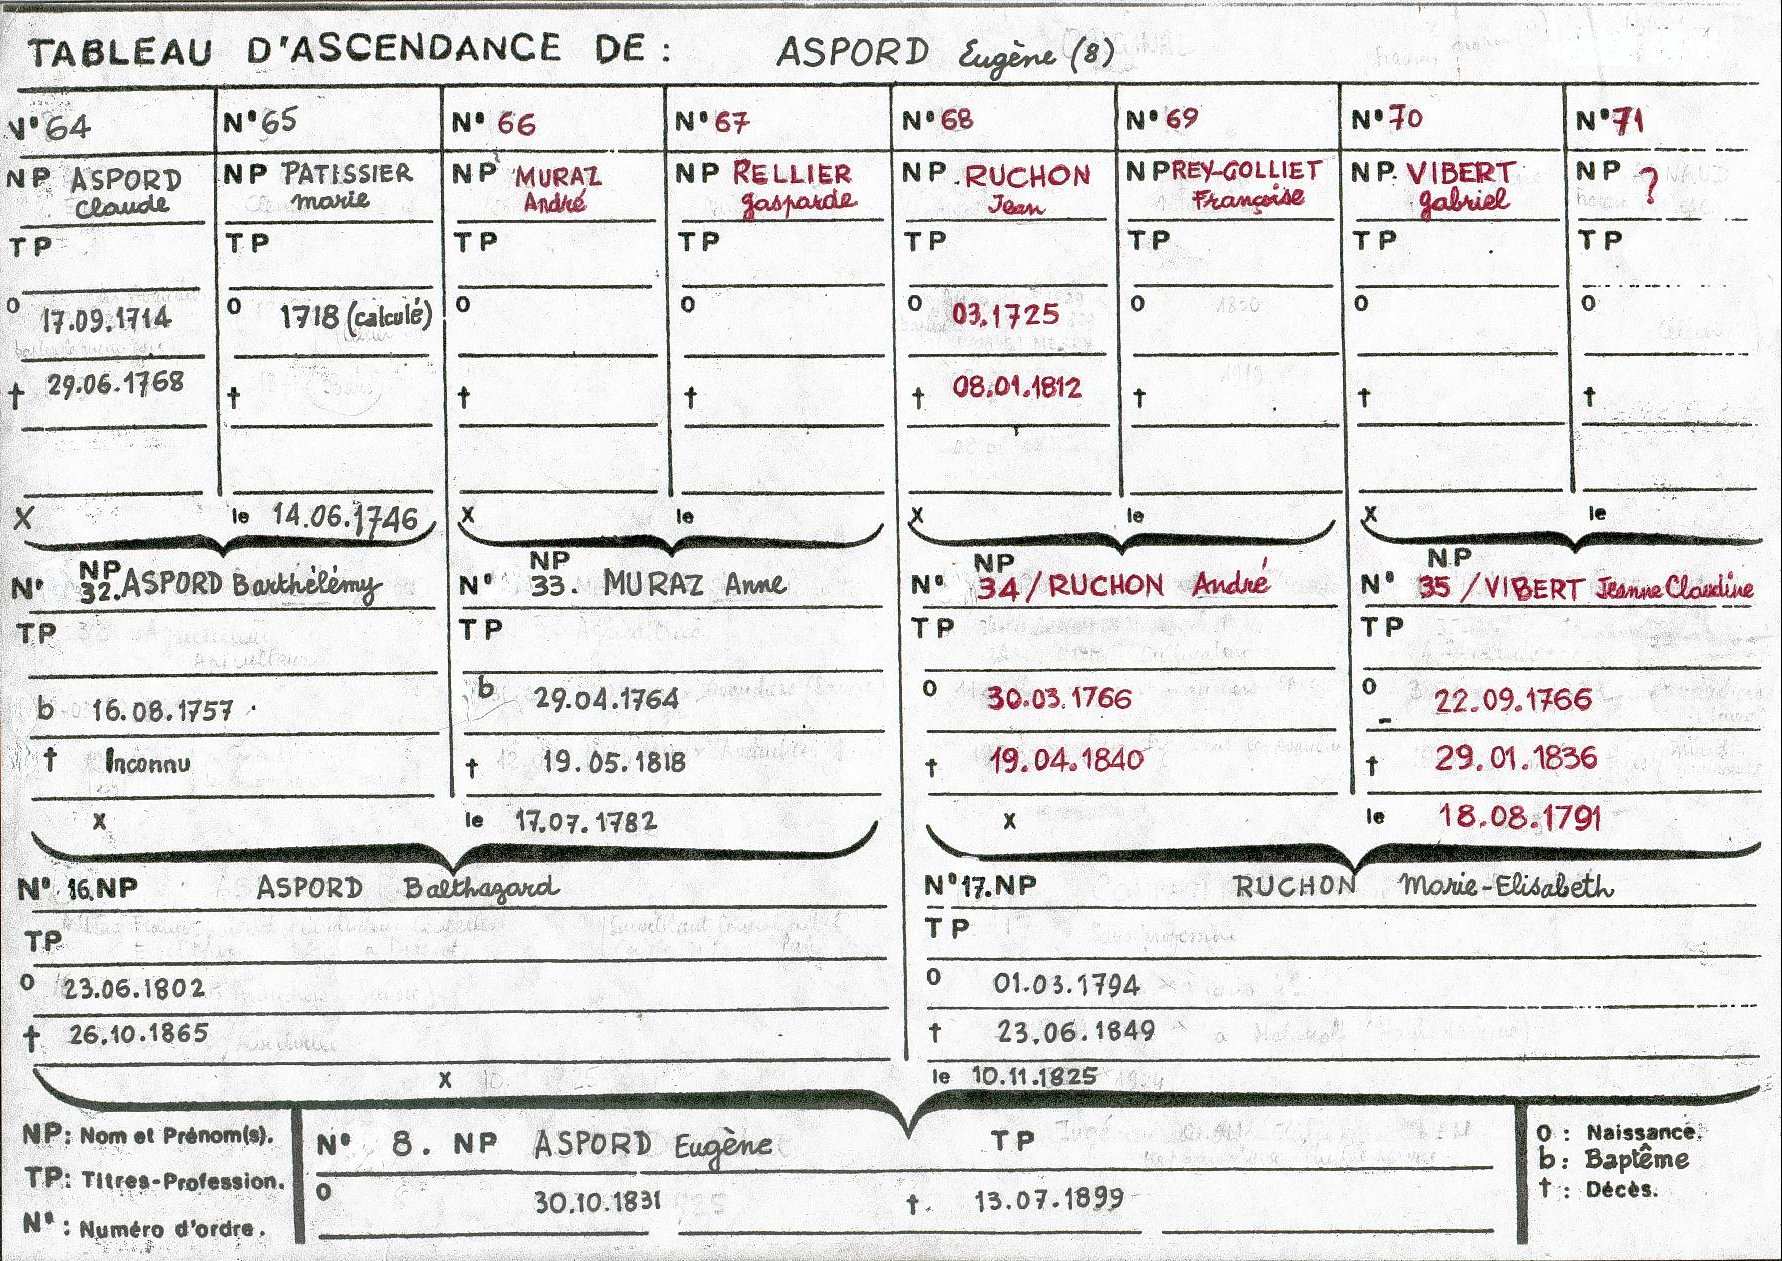 TABLEAU D'ASCENDANCE DE : ASPORD Eugène (8)
N° 64 N° 65 N° 66 N° 67 N° 68 N° 69 N° 70 N° 71
NP ASPORD NP PATISSIER NP MURAZ NP RELLIER NP RUCHON NP REY-GOLLIET NP VIBERT NP ?
Claude marie André gasparde Jean Françoise gabriel
TP TP TP TP TP TP TP TP
O 17.09.1714 O 1718 (calculé) O O O 03.1725 O O O
† 29.06.1768 † † † † 08.01.1812 † † †
X le 14.06.1746 X le X le X le
NP NP NP NP
N° 32. ASPORD Barthélémy N° 33. MURAZ Anne N° 34/RUCHON André N° 35/VIBERT Jeanne Claudine
TP TP TP TP
b 16.08.1757 b 29.04.1764 O 30.03.1766 O 22.09.1766
† Inconnu † 19.05.1818 † 19.04.1840 † 29.01.1836
X le 17.07.1782 X le 18.08.1791
N° 16. NP ASPORD Balthazard N° 17. NP RUCHON Marie-Elisabeth
TP TP
O 23.06.1802 O 01.03.1794
† 26.10.1865 † 23.06.1849
X le 10.11.1825
NP: Nom et Prénom(s). N° 8. NP ASPORD Eugène TP O : Naissance.
b : Baptême
TP: Titres-Profession. O 30.10.1831 †. 13.07.1899 † : Décès.
N° : Numéro d'ordre.